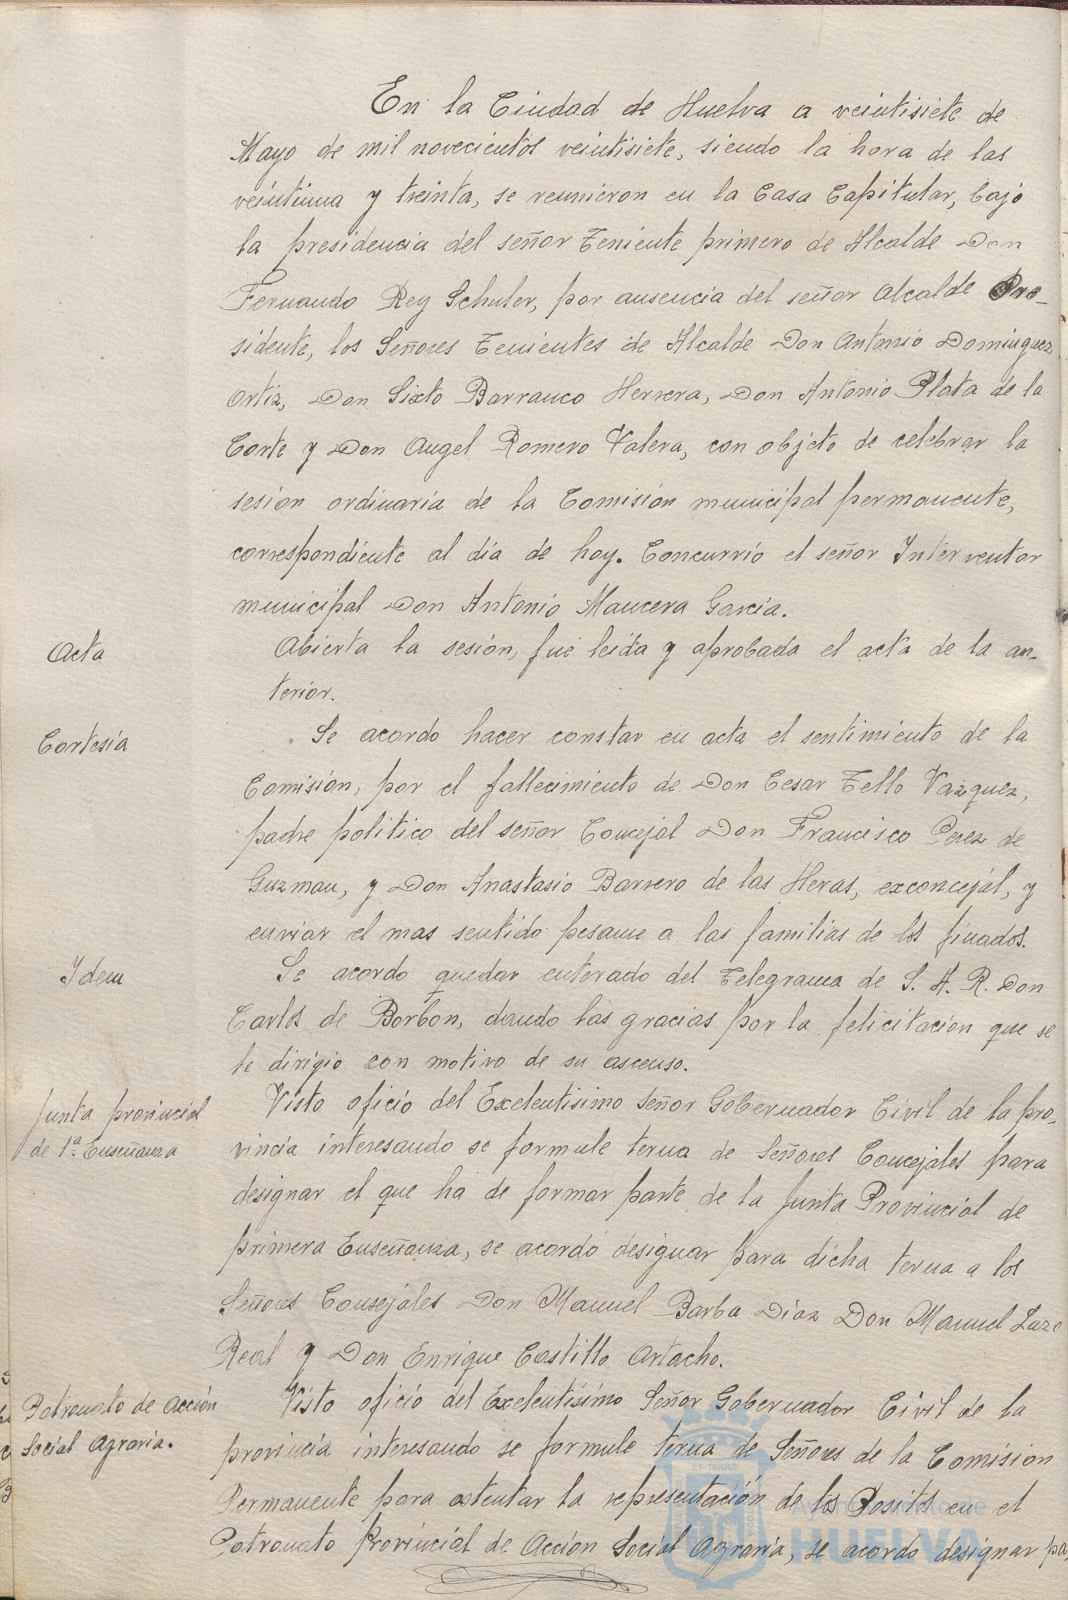 En la Ciudad de Huelva a veintisiete de
Mayo de mil novecientos veintisiete, siendo la hora de las
veintiuna y treinta, se reunieron en la Casa Capitular, bajo
la presidencia del señor Teniente primero de Alcalde Don
Fernando Rey Schuler, por ausencia del señor Alcalde Pre-
sidente, los Señores Tenientes de Alcalde Don Antonio Dominguez
Ortiz, Don Sixto Barranco Herrera, Don Antonio Plata de la
Corte y Don Angel Romero Valera, con objeto de celebrar la
sesión ordinaria de la Comisión municipal permanente,
correspondiente al día de hoy. Concurrió el señor Interventor
municipal Don Antonio Mancera García.
Acta
Abierta la sesión, fué leida y aprobada el acta de la an-
terior.
Cortesía
Se acordo hacer constar en acta el sentimiento de la
Comisión, por el fallecimiento de Don Cesar Tello Vazquez,
padre politico del señor Concejal Don Francisco Perez de
Guzman, y Don Anastasio Barrero de las Heras, exconcejal, y
enviar el mas sentido pesame a las familias de los finados.
Idem
Se acordo quedar enterado del Telegrama de S. A. R. Don
Carlos de Borbon, dando las gracias por la felicitacion que se
le dirigio con motivo de su ascenso.
Junta provincial
de 1ª Enseñanza
Visto oficio del Exelentisimo Señor Gobernador Civil de la pro-
vincia interesando se formule terna de Señores Concejales para
designar el que ha de formar parte de la Junta Provincial de
primera Enseñanza, se acordó designar para dicha terna a los
Señores Consejales Don Manuel Barba Diaz Don Manuel Lazo
Real y Don Enrique Castillo Artacho.
Patronato de Acción
Social Agraria.
Visto oficio del Exelentísimo Señor Gobernador Civil de la
provincia interesando se formule terna de Señores de la Comision
Permanente para ostentar la representación de los Positos en el
Patronato Provincial de Acción Social Agraria, se acordo designar pa
Ayuntamiento de
HUELVA